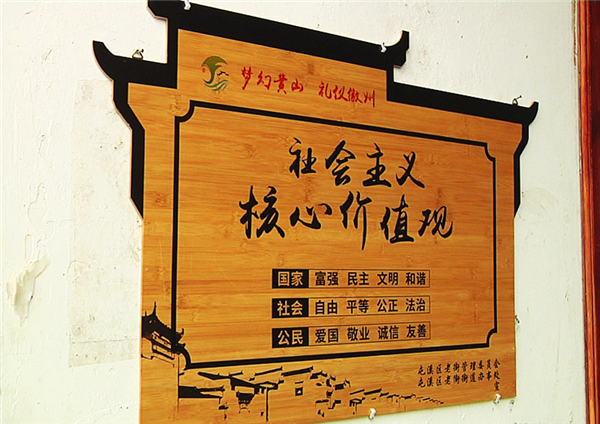 梦幻黄山 礼仪徽州
社会主义
核心价值观
国家 富强 民主 文明 和谐
社会 自由 平等 公正 法治
公民 爱国 敬业 诚信 友善
屯溪区老街管理委员会
屯溪区老街街道办事处
宣